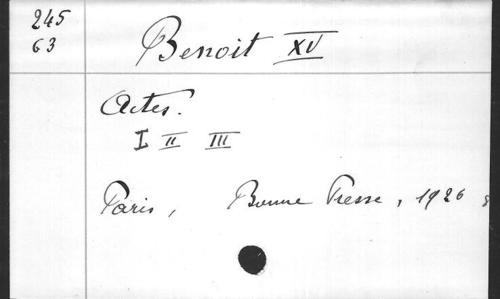 245
63
Benoit XV
Actes.
I II III
Paris, Bonne Presse, 1926